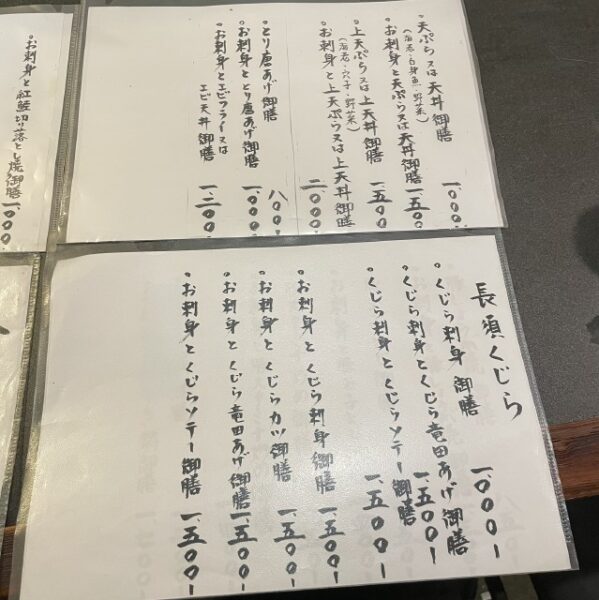 ・天ぷら又は天丼御膳 一、〇〇〇
(海老・白身魚・野菜)
・お刺身と天ぷら又は天丼御膳 一、五〇〇
・上天ぷら又は上天丼御膳 一、五〇〇
(海老・穴子・野菜)
・お刺身と上天ぷら又は上天丼御膳 二、〇〇〇
・とり唐あげ御膳 八〇〇
・お刺身ととり唐あげ御膳 一、〇〇〇
・お刺身とエビフライ又は
エビ天丼御膳 一、二〇〇
・お刺身と紅鮭切り落とし焼御膳 一、〇〇〇
長須くじら
・くじら刺身御膳 一、〇〇〇ー
・くじら刺身とくじら竜田あげ御膳 一、五〇〇ー
・くじら刺身とくじらソテー御膳 一、五〇〇ー
・お刺身とくじら刺身御膳 一、五〇〇ー
・お刺身とくじらカツ御膳 一、五〇〇ー
・お刺身とくじら竜田あげ御膳 一、五〇〇ー
・お刺身とくじらソテー御膳 一、五〇〇ー